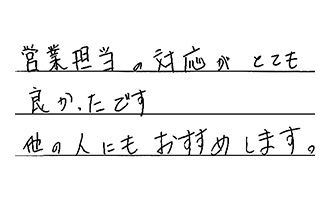 営業担当の対応がとても
良かったです
他の人にもおすすめします。